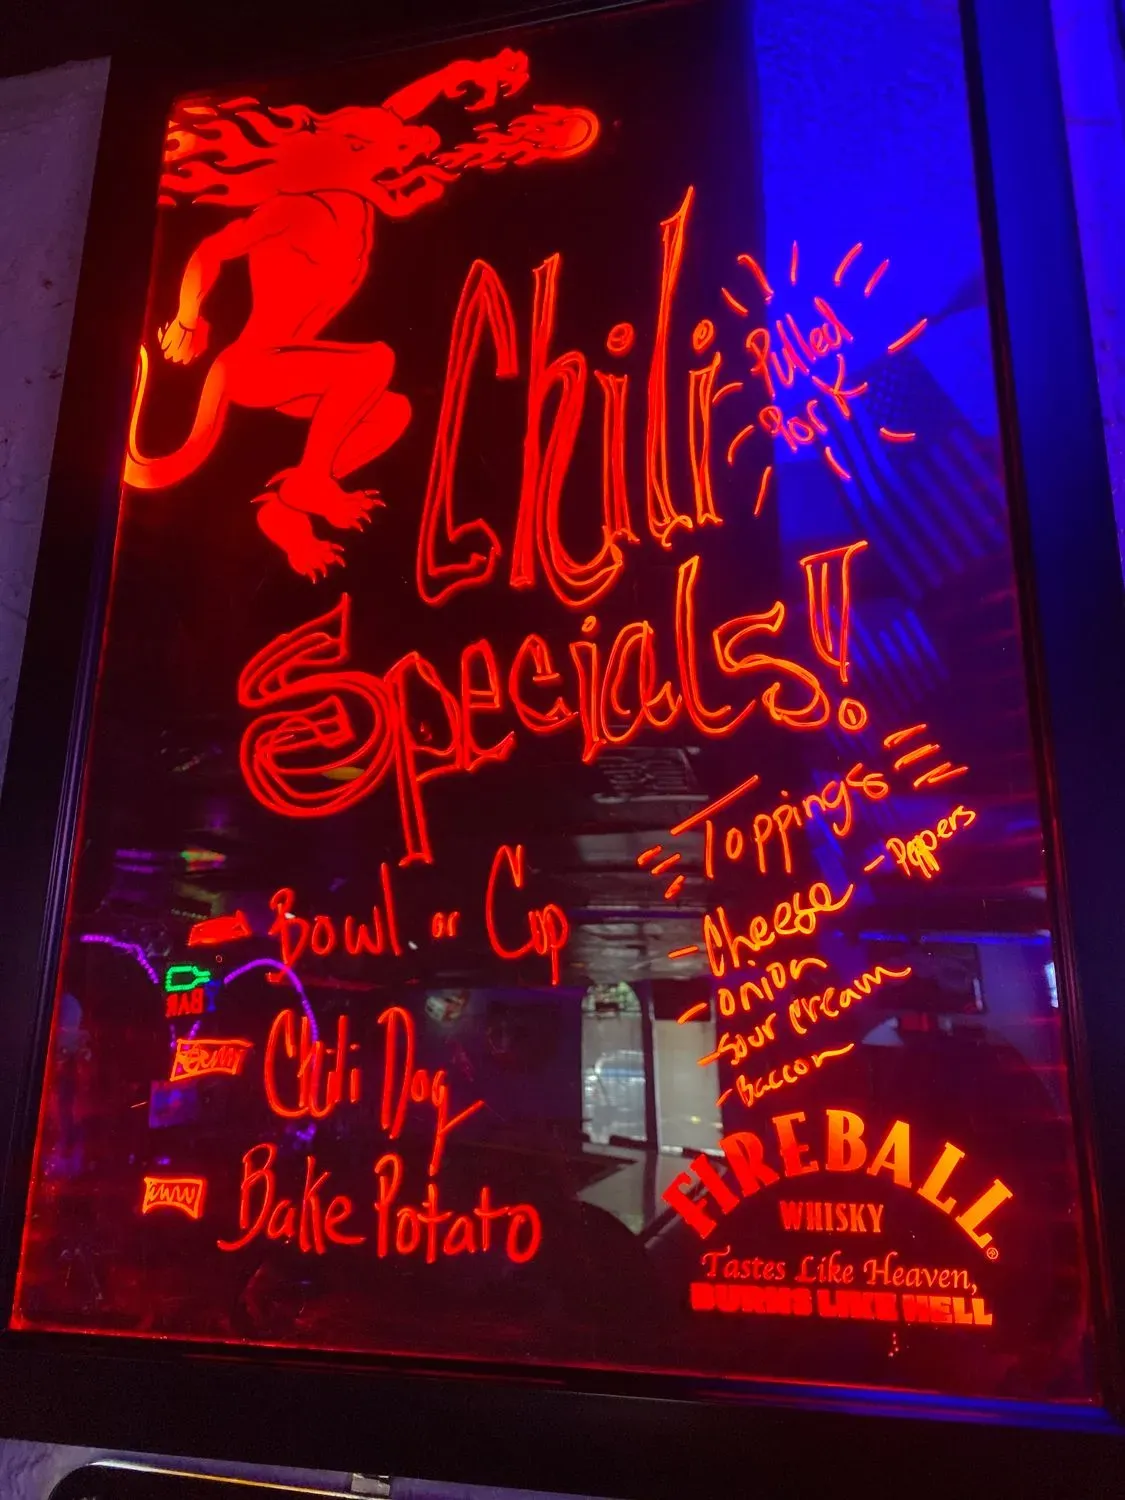 Chili
Pulled
Pork
Specials!
Bowl or Cup
Chili Dog
Bake Potato
Toppings
- Peppers
- Cheese
- onion
- sour cream
- Baccon
FIREBALL®
WHISKY
Tastes Like Heaven,
BURNS LIKE HELL
BAR